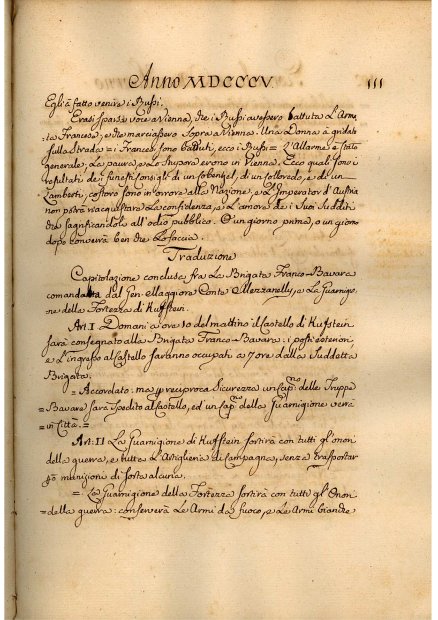 Anno MDCCCV. 111
Egli à fatto venire i Russi.
Erasi sparsa voce a Vienna, che i Russi avessero battuta l'Arma-
ta Francese, e che marciassero sopra Vienna. Una Donna à gridato
sulla strada = i Francesi sono battuti, ecco i Russi = L'Allarme è stato
generale; Le paure, e lo stupore erono in Vienna. Ecco quali sono i
resultati de' funesti consigli di un Cobenzel, di un Colloredo, e di un
Lamberti, costoro sono in orrore alla Nazione, e L'Imperator d'Austria
non potrà riacquistare La confidenza, e L'amore de i Suoi Sudditi
che sagrificandoli all'odio pubblico. O un giorno prima, o un giorno
dopo converrà ben che Lo faccia.
Traduzione
Capitolazione conclusa fra La Brigata Franco-Bavara
comandata dal Gen. Maggiore Conte Mezzanelli, e La Guarnigio-
ne della Fortezza di Kuffstein.
Art. I Domani a ore 10 del mattino il Castello di Kufstein
sarà consegnato alla Brigata Franco-Bavara: i posti esteriori,
e L'ingresso al Castello saranno occupati a 7 ore dalla Suddetta
Brigata.
= Accordato: ma p. reciproca Sicurezza un Cap.no delle Truppe
= Bavare sarà Spedito al Castello, ed un Cap.no della Guarnigione verrà
= in Città. =
Art: II La Guarnigione di Kuffstein sortirà con tutti gl'onori
della guerra, e tutta L'Artiglieria di Campagna, senza trasportar
però munizioni di sorta alcuna.
= La Guarnigione della Fortezza sortirà con tutti gl'Onori
= della guerra: conserverà Le Armi da fuoco, e Le Armi bianche